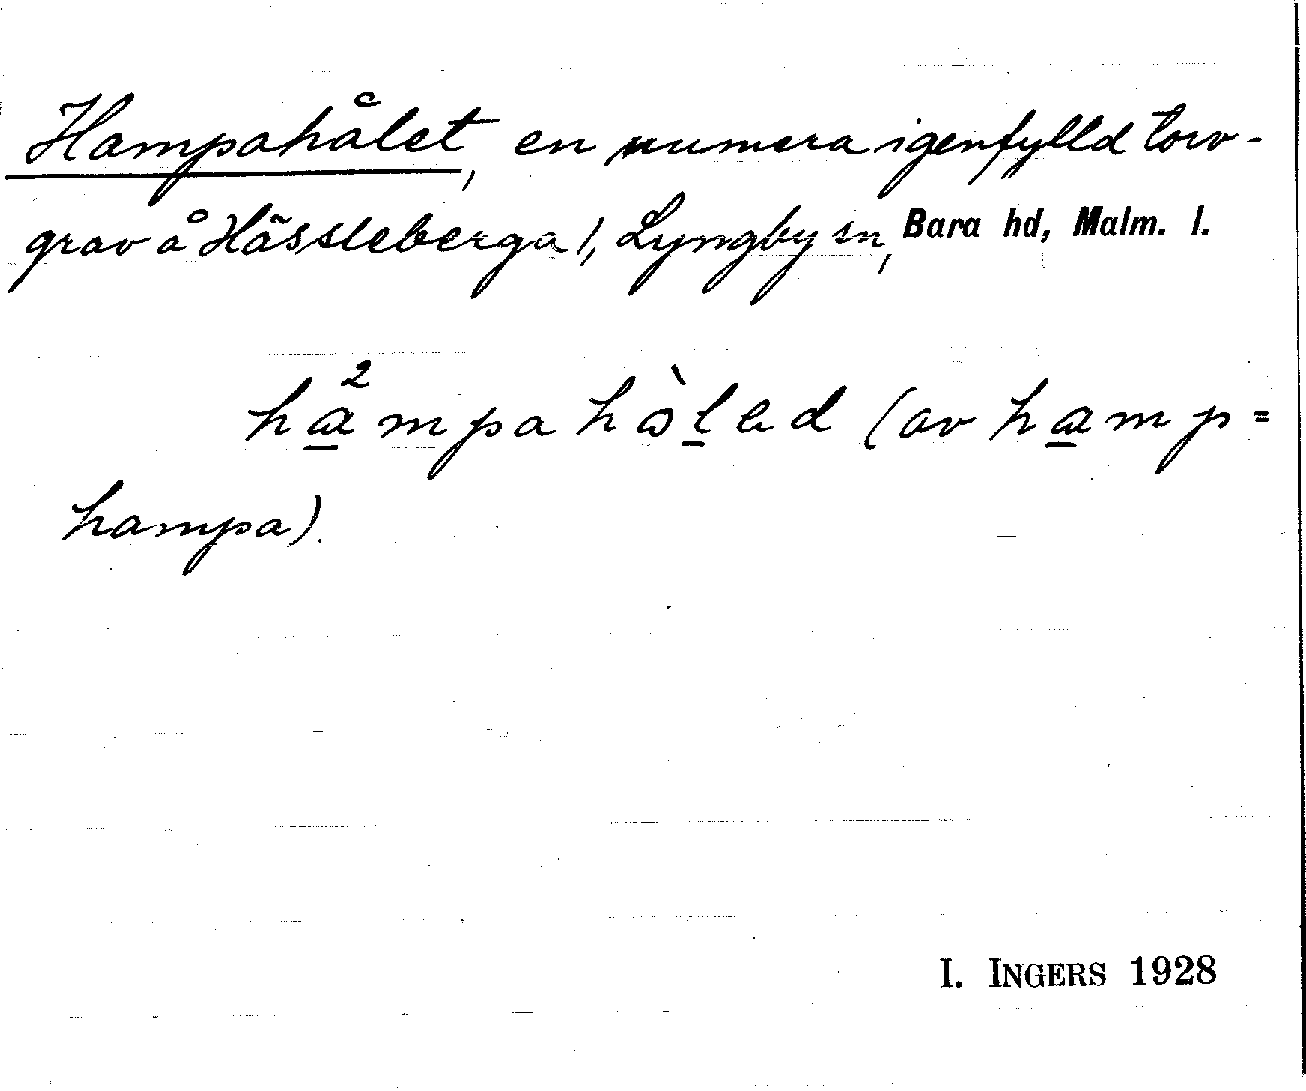 Hampahålet, en numera igenfylld torv-
grav å Hässleberga 1, Lyngby sn, Bara hd, Malm. l.
ha²mpahòləd (av hamp =
hampa).
I. INGERS 1928